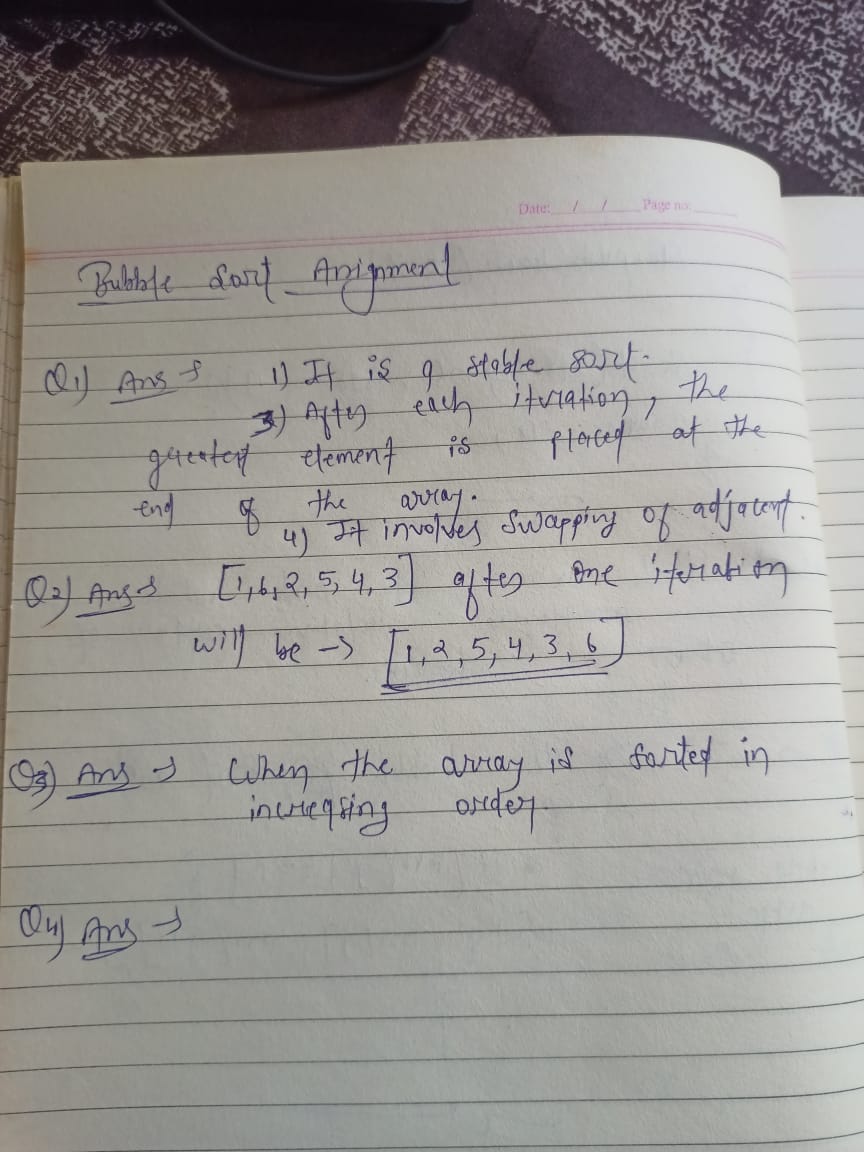 Date: / / Page no:
Bubble Sort Assignment
Q1) Ans → 1) It is a stable sort.
3) After each iteration, the
greatest element is placed at the
end of the array.
4) It involves swapping of adjacent.
Q2) Ans → [1,6,2,5,4,3] after one iteration
will be → [1,2,5,4,3,6]
Q3) Ans → When the array is sorted in
increasing order.
Q4) Ans →